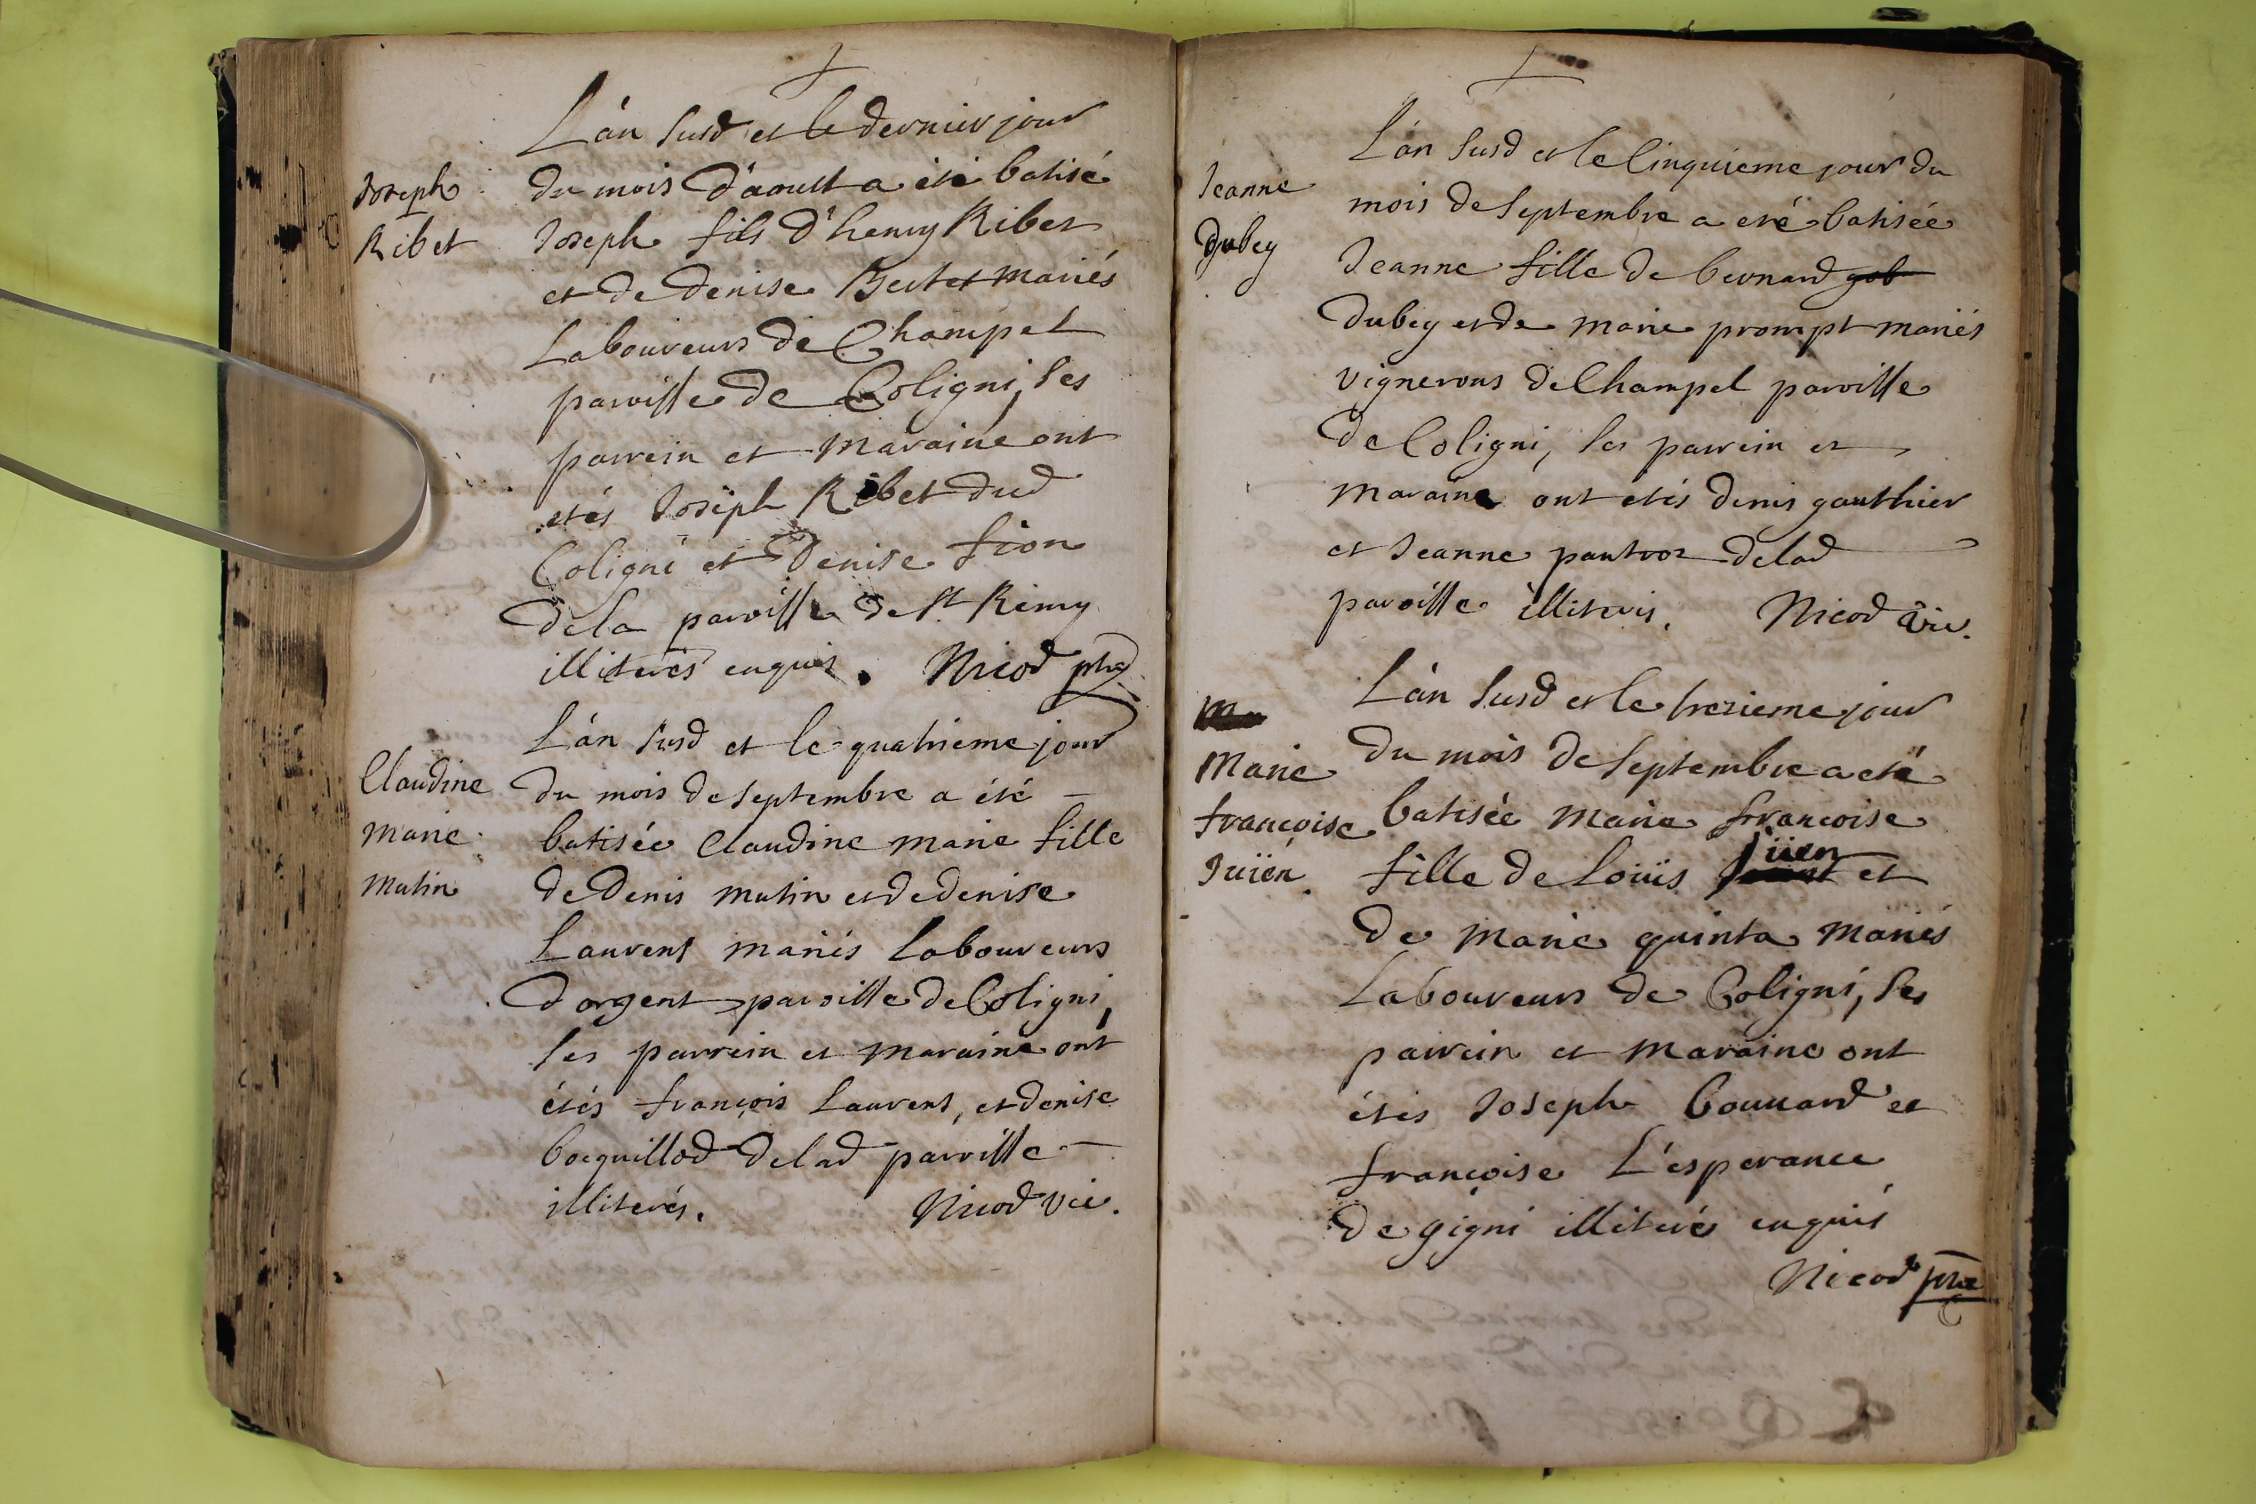 L'an susd et le dernier jour
Joseph
Ribet
du mois d'aoust a eté batisé
Joseph fils d'henry Ribet
et de denise Bertet mariés
Laboureurs de Champel
paroisse de Coligni, ses
parrein et maraine ont
etés Joseph Ribet dud
Coligni et Denise fion
de la paroisse de St Remy
illiterés enquis. Nicod ptre
L'an susd et le quatrieme jour
Claudine
marie
mutin
du mois de septembre a été
batisée Claudine marie fille
de Denis mutin et de denise
Laurent mariés Laboureurs
d'argent paroisse de Coligni,
ses parrein et maraine ont
étés françois Laurent, et denise
bocquillod de lad paroisse
illiterés. Nicod vic.
L'an susd et le Cinquieme jour du
Jeanne
Dubey
mois de septembre a eté batisée
Jeanne fille de bernard gob
Dubey et de marie prompt mariés
vignerons de Champel paroisse
de Coligni, ses parrein et
maraine ont etés denis gauthier
et Jeanne pautroz de lad
paroisse illiteris. Nicod vic.
L'an susd et le trezieme jour
Marie
françoise
Juïen
du mois de septembre a eté
batisée marie françoise
fille de Loüis Jüen et
de marie quinta mariés
Laboureurs de Coligni, ses
parrein et maraine ont
étés Joseph bouuard et
françoise L'esperance
de gigni illiterés enquis
Nicod ptre